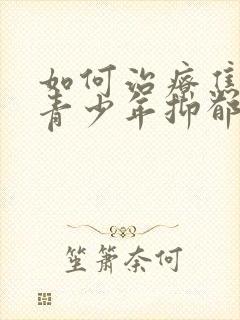 如何治療焦
青少年抑郁
笙箫奈何